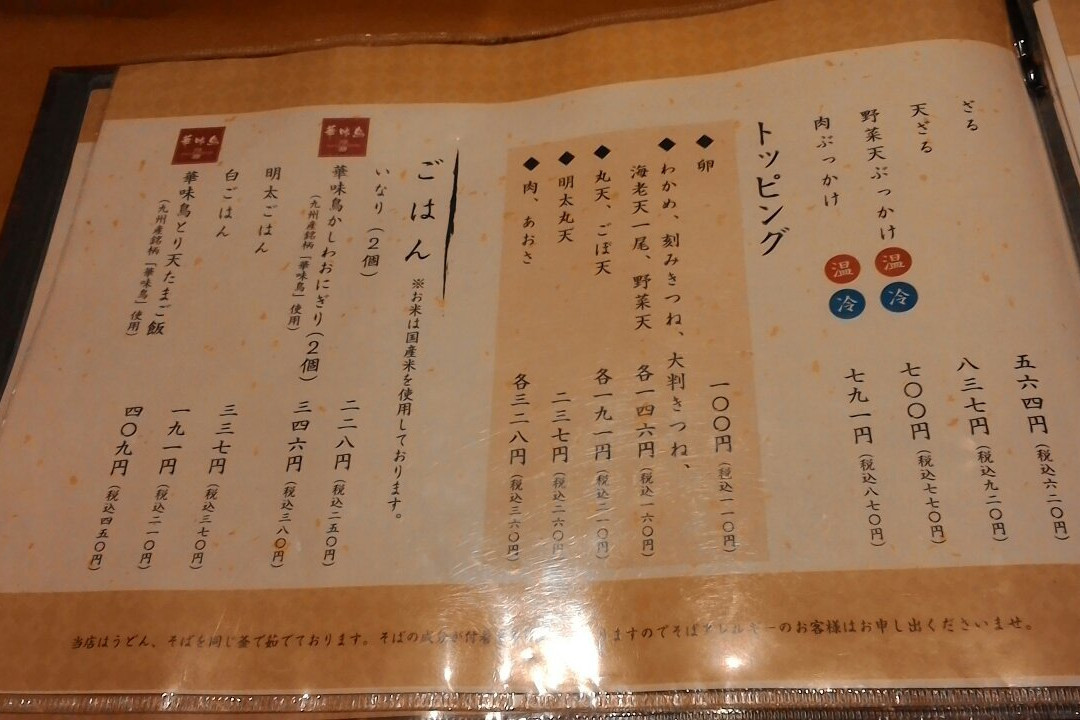 ざる 五六四円(税込六二〇円)
天ざる 八三七円(税込九二〇円)
野菜天ぶっかけ 温 冷 七〇〇円(税込七七〇円)
肉ぶっかけ 温 冷 七九一円(税込八七〇円)
トッピング
◆卵 一〇〇円(税込一一〇円)
◆わかめ、刻みきつね、大判きつね、
海老天一尾、野菜天 各一四六円(税込一六〇円)
◆丸天、ごぼ天 各一九一円(税込二一〇円)
◆明太丸天 二三七円(税込二六〇円)
◆肉、あおさ 各三二八円(税込三六〇円)
ごはん ※お米は国産米を使用しております。
いなり(2個) 二二八円(税込二五〇円)
華味鳥
華味鳥かしわおにぎり(2個) 三四六円(税込三八〇円)
(九州産銘柄「華味鳥」使用)
明太ごはん 三三七円(税込三七〇円)
白ごはん 一九一円(税込二一〇円)
華味鳥
華味鳥とり天たまご飯 四〇九円(税込四五〇円)
(九州産銘柄「華味鳥」使用)
当店はうどん、そばを同じ釜で茹でております。そばの成分が付着 りますのでそばアレルギーのお客様はお申し出くださいませ。